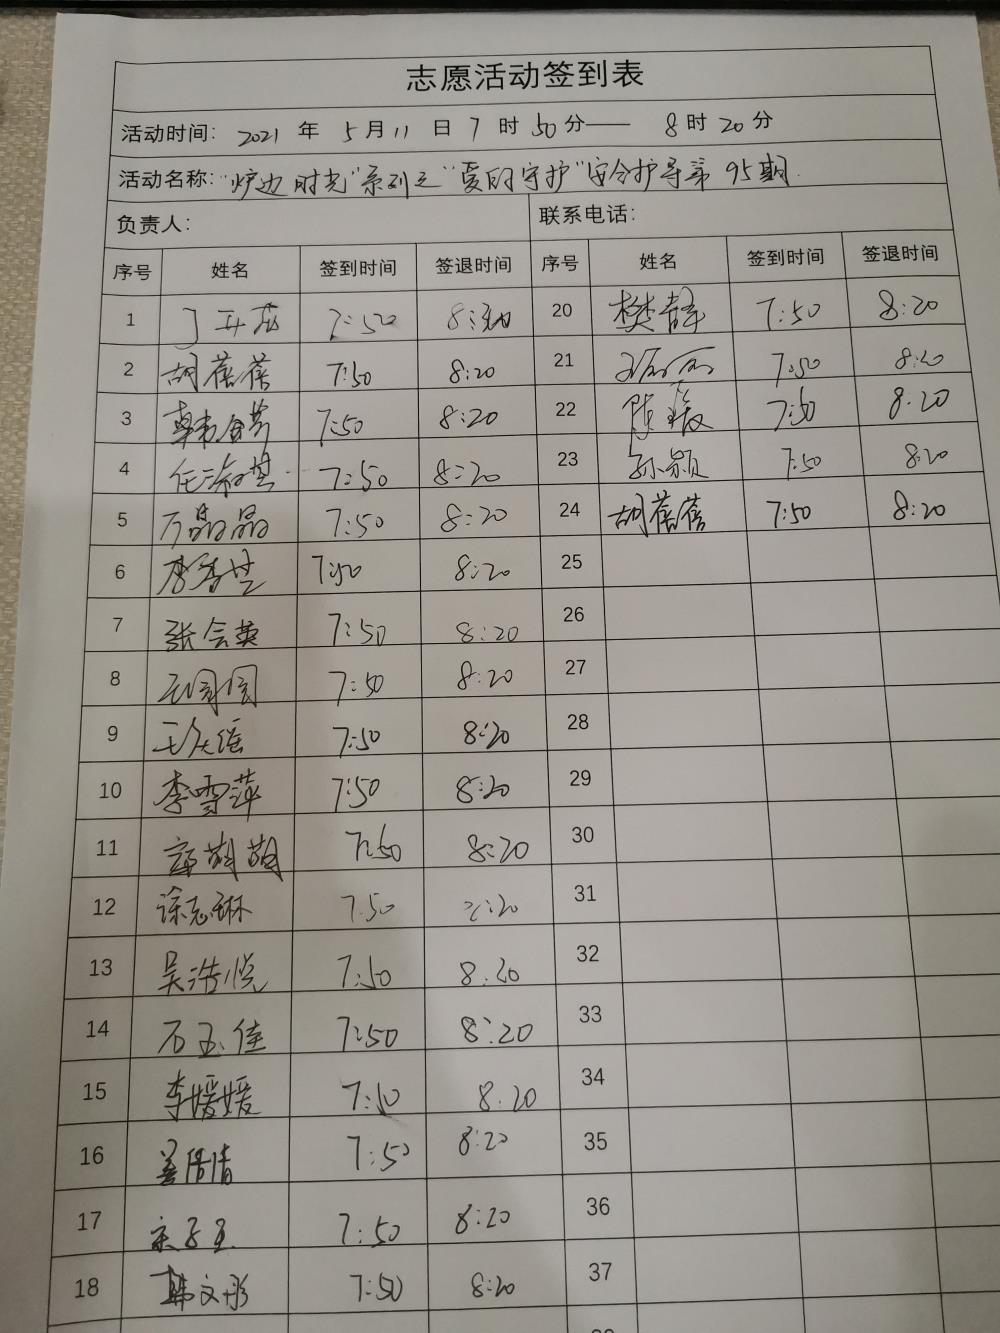 志愿活动签到表
活动时间: 2021 年 5 月 11 日 7 时 50 分—— 8 时 20 分
活动名称: "炉边时光"系列之"爱的守护"安全护导第 95 期.
负责人: 联系电话:
序号 姓名 签到时间 签退时间 序号 姓名 签到时间 签退时间
1 7:50 20 樊 7:50 8:20
2 胡蓓蓓 7:50 8:20 21 7:50 8:20
3 7:50 8:20 22 陈 7:50 8:20
4 7:50 8:20 23 孙颖 7:50 8:20
5 万晶晶 7:50 8:20 24 胡蓓蓓 7:50 8:20
6 李秀芝 7:50 8:20 25
7 张会英 7:50 8:20 26
8 7:50 8:20 27
9 7:50 8:20 28
10 李雪萍 7:50 8:20 29
11 萌萌 7:50 8:20 30
12 徐志琳 7:50 :20 31
13 吴浩悦 7:50 8:20 32
14 石玉佳 7:50 8:20 33
15 李媛媛 7:50 8:20 34
16 姜倩倩 7:50 8:20 35
17 宋子玉 7:50 8:20 36
18 韩文彤 7:50 8:20 37